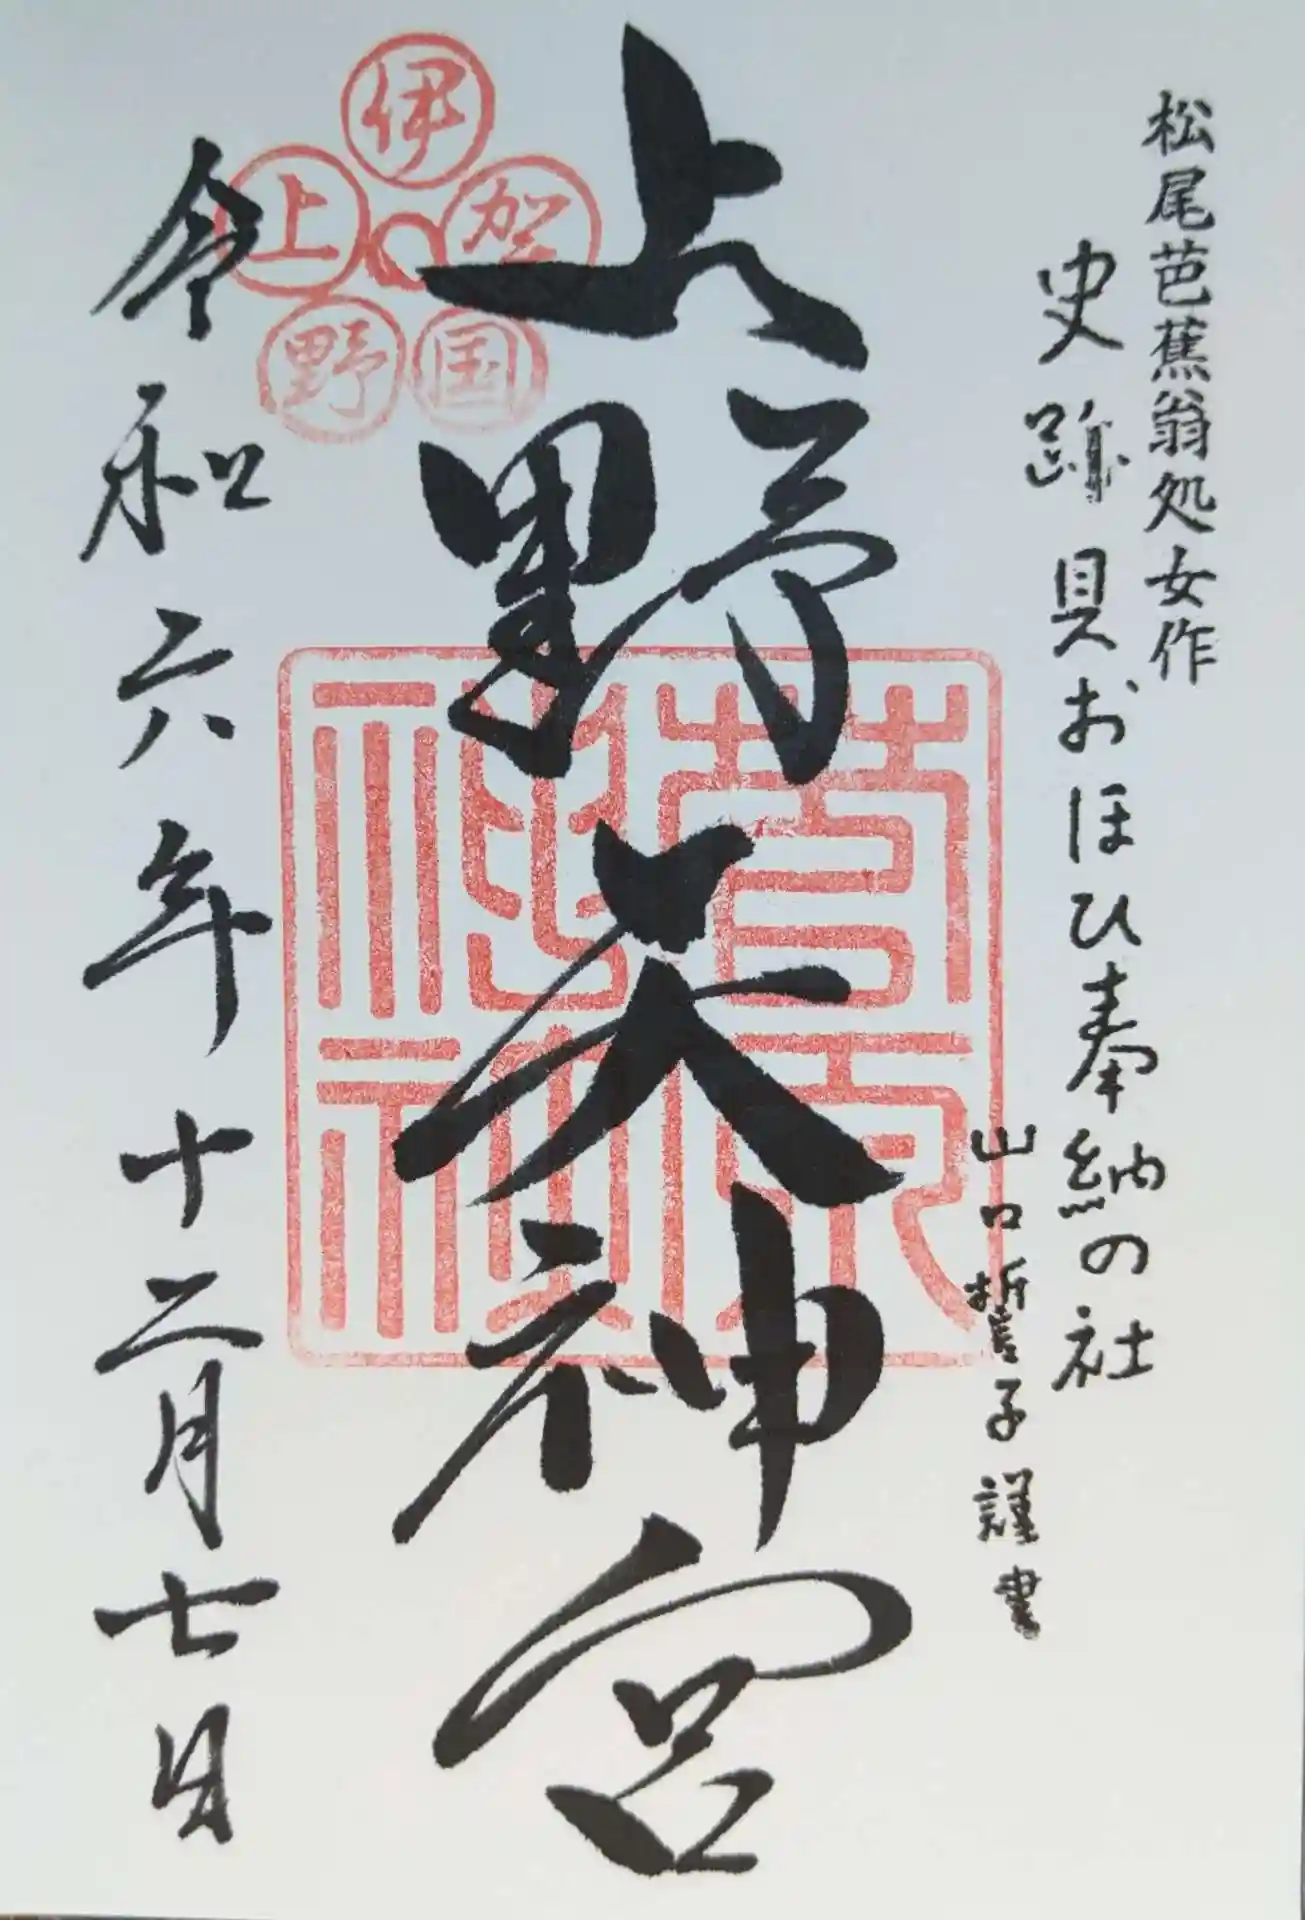 松尾芭蕉翁処女作
史跡 貝おほひ奉納の社
山口誓子 謹書
上野天神宮
伊賀国上野
菅原神社
令和六年十二月七日